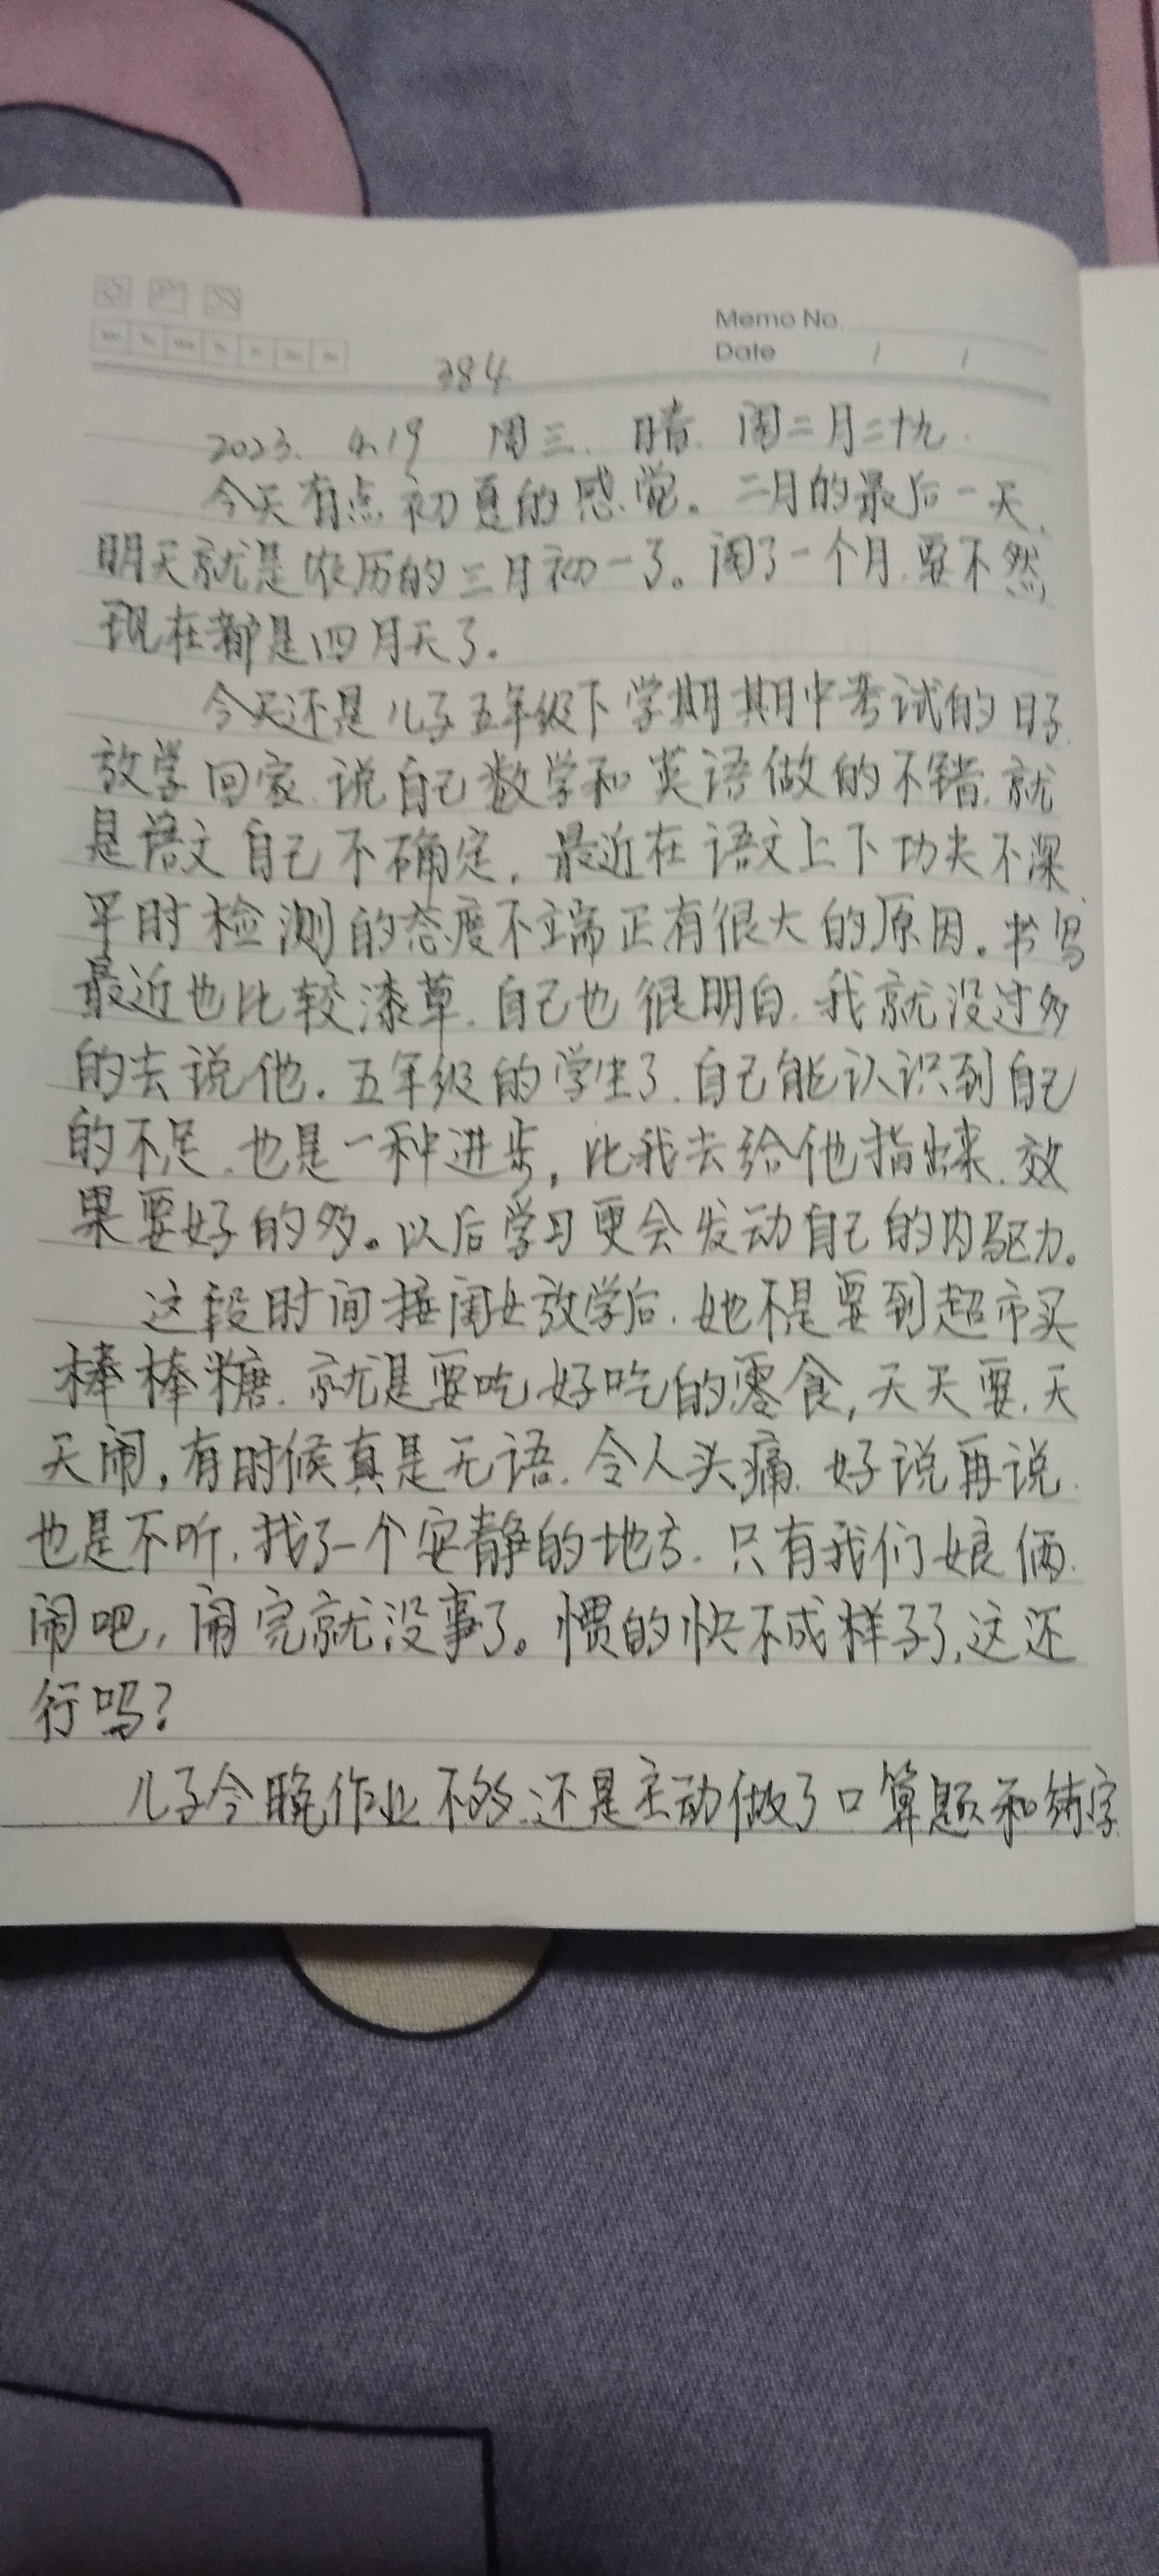 Memo No.
Date / /
284
2023. 4.19 周三. 晴. 闰二月二十九.
今天有点初夏的感觉。二月的最后一天,
明天就是农历的三月初一了。闰了一个月,要不然,
现在都是四月天了.
今天还是儿子五年级下学期期中考试的日子,
放学回家,说自己数学和英语做的不错,就
是语文自己不确定,最近在语文上下功夫不深,
平时检测的态度不端正有很大的原因。书写
最近也比较漆草,自己也很明白,我就没过多
的去说他.五年级的学生了,自己能认识到自己
的不足,也是一种进步,比我去给他指出来,效
果要好的多。以后学习更会发动自己的内驱力。
这段时间接闺女放学后,她不是要到超市买
棒棒糖,就是要吃好吃的零食,天天要,天
天闹,有时候真是无语,令人头痛,好说再说,
也是不听,找了一个安静的地方,只有我们娘俩,
闹吧,闹完就没事了。惯的快不成样子了,这还
行吗?
儿子今晚作业不多,还是主动做了口算题和练字